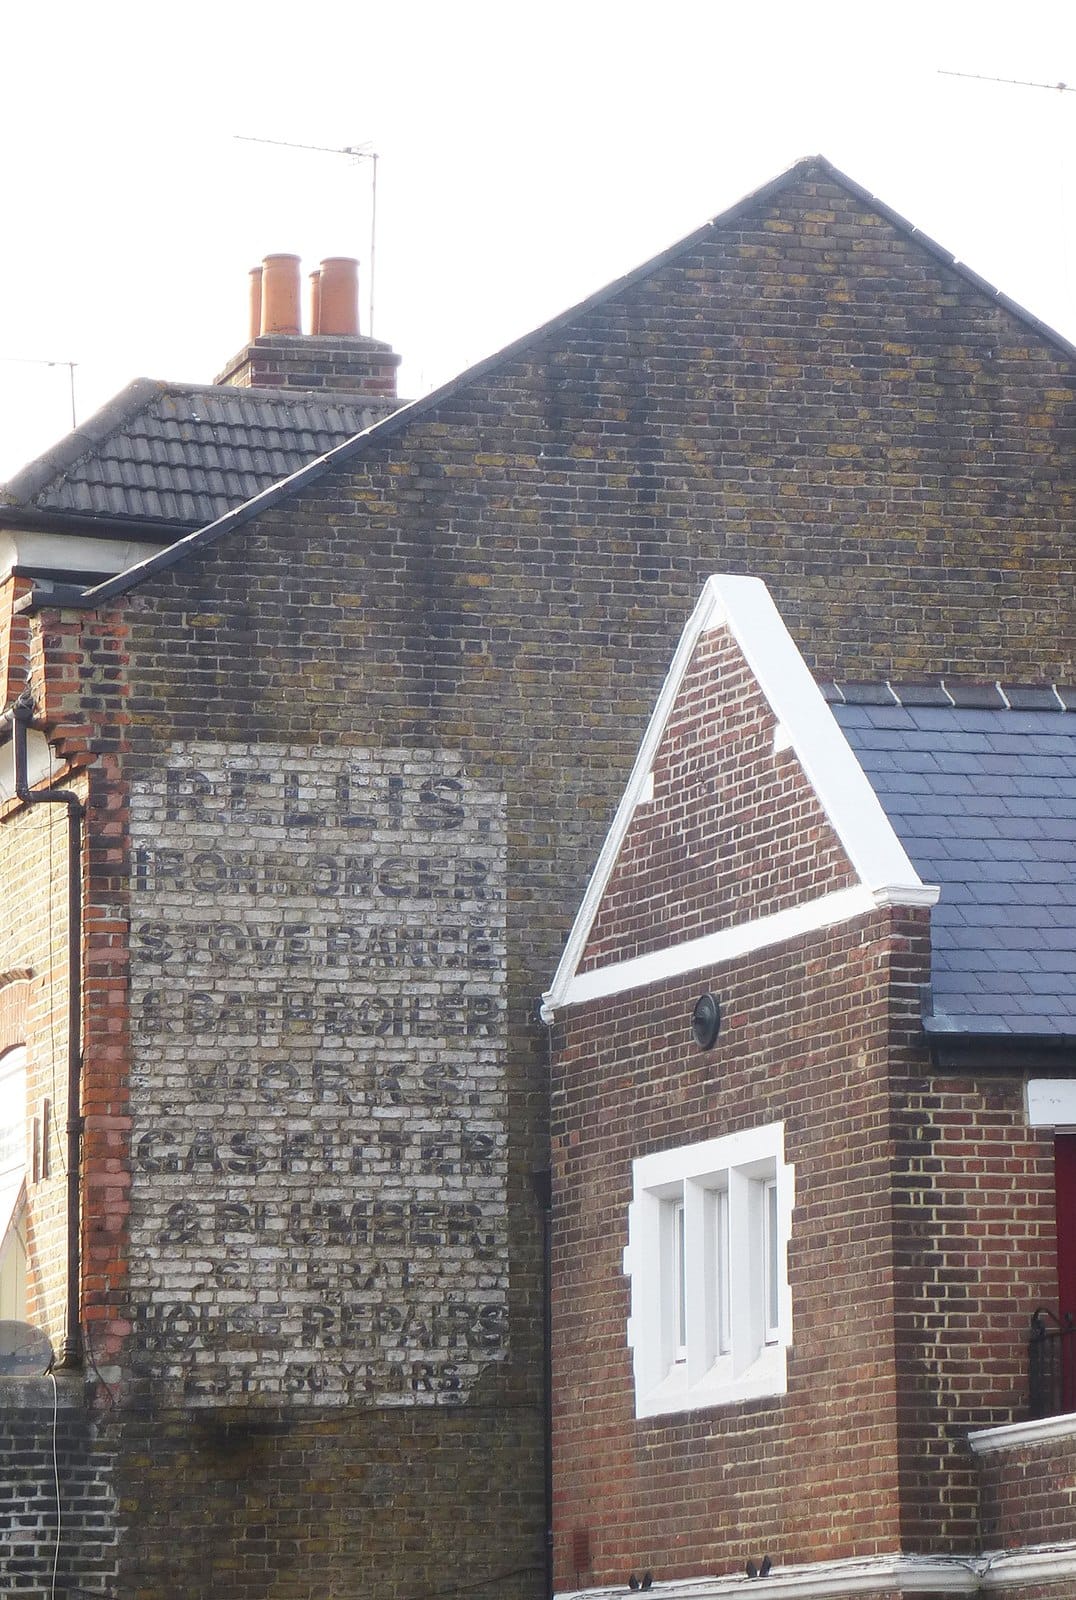 IRONMONGER
STOVE RANGE
& BATH BOILER
WORKS.
GASFITTER
& PLUMBER
GENERAL
HOUSE REPAIRS
EST. 50 YEARS.